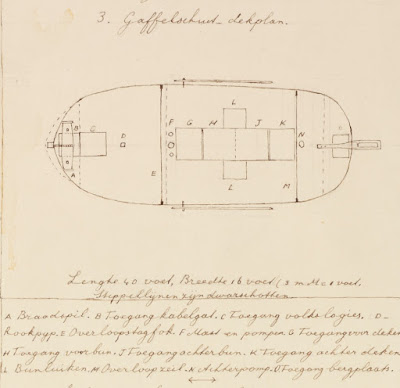 3. Gaffelschuit - dekplan.
B
C
D
F
G
H
L
J
K
N
A
E
L
M
Lengte 40 voet, Breedte 16 voet
Stippellijnen zijn dwarschotten.
A Braadspil. B Toegang kabelgat. C Toegang volks logies. D-
Rookpyp. E Overloop stagfok. F Mast en pompen. G Toegang voor deken
H Toegang voor bun. J Toegang achter bun. K Toegang achter deken
L Bunluiken. M Overloop zeil. N Achterpomp. O Toegang bergplaats.